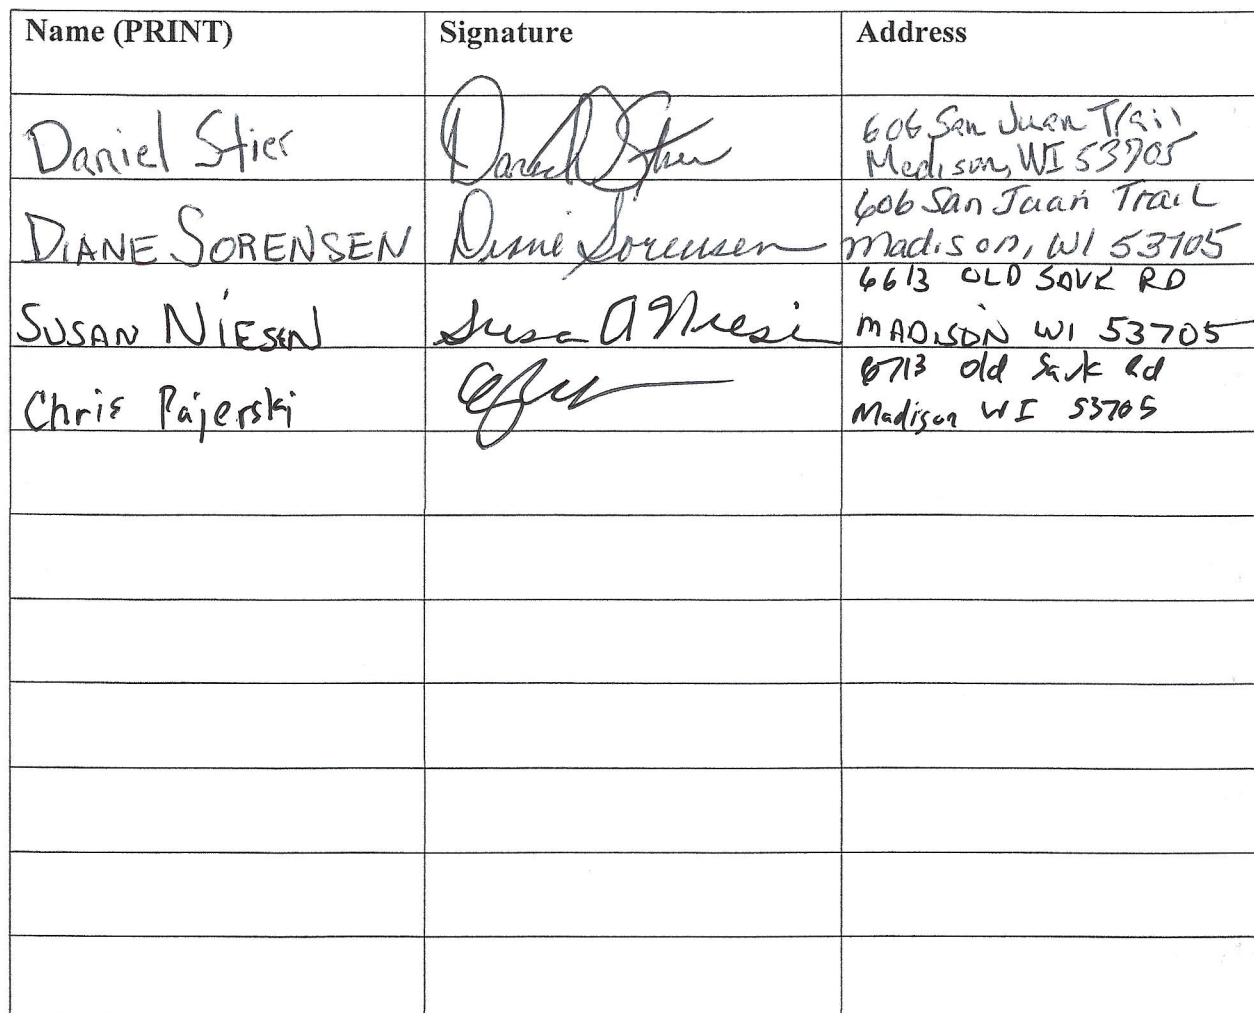 Name (PRINT) Signature Address
Daniel Stier Daniel D Stier 606 San Juan Trail
Madison, WI 53705
DIANE SORENSEN Diane Sorensen 606 San Juan Trail
Madison, WI 53705
SUSAN NIESEN Susan A Niesen 6613 OLD SAUK RD
MADISON WI 53705
Chris Pajerski 6713 Old Sauk Rd
Madison WI 53705